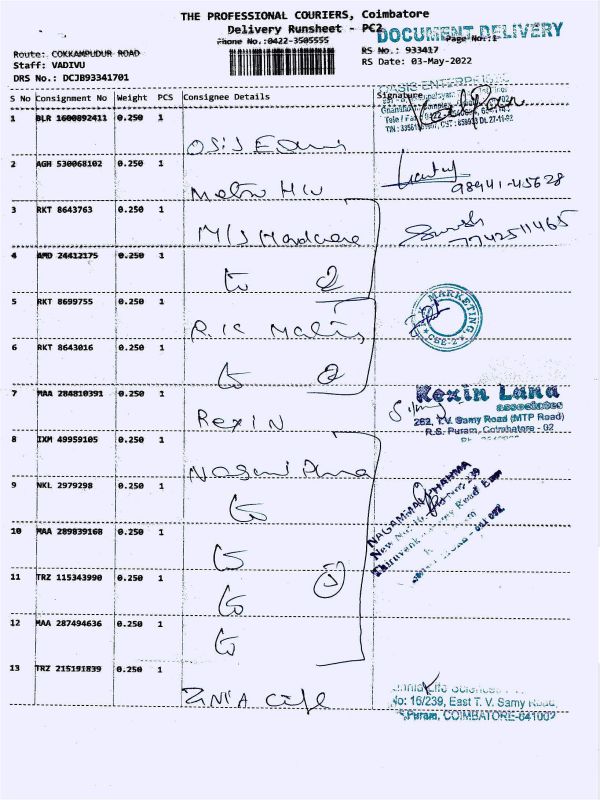 THE PROFESSIONAL COURIERS, Coimbatore
Delivery Runsheet - PC2
DOCUMENT DELIVERY
Phone No.:0422-3505555
Page No.:1
Route: COKKAMPUDUR ROAD
RS No.: 933417
Staff: VADIVU
RS Date: 03-May-2022
DRS No.: DCJB93341701
S No Consignment No Weight PCS Consignee Details Signature
OASIS ENTERPRISES
1 BLR 1600892411 0.250 1
2 AGH 530068102 0.250 1
Metro
98941-45628
3 RKT 8643763 0.250 1
M/S Hardware
7742511465
4 AMD 24412175 0.250 1
to 2
5 RKT 8699755 0.250 1
MARKETING
CBE-2
6 RKT 8643016 0.250 1
to 2
7 MAA 284810391 0.250 1
Rexin
Rexin Land
associates
282, T.V. Samy Road (MTP Road)
R.S. Puram, Coimbatore - 02
8 IXM 49959105 0.250 1
NAGAMMAI PHARMA
9 NKL 2979298 0.250 1
to
10 MAA 289839168 0.250 1
to
11 TRZ 115343990 0.250 1
to
12 MAA 287494636 0.250 1
to
13 TRZ 215191839 0.250 1
Zinia Life
No: 16/239, East T. V. Samy Road,
S.Puram, COIMBATORE-641002